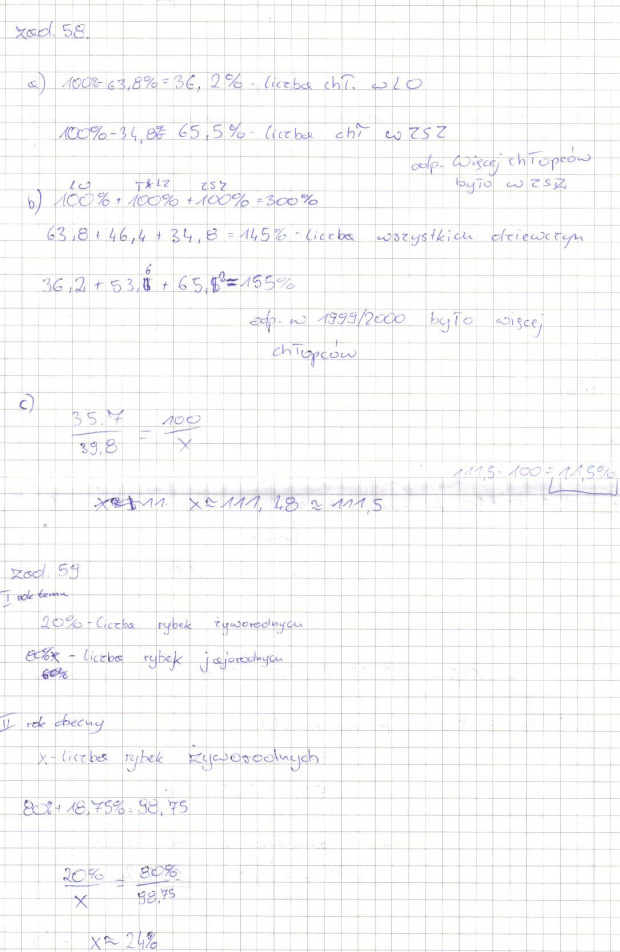 zad. 58.
a) 100%-63,8% = 36,2% - liczba chł. w LO
100% - 34,8% = 65,5% - liczba chł w ZSZ
odp. Więcej chłopców
było w ZSZ
LO ZSZ
b) 100% + 100% + 100% = 300%
63,8 + 46,4 + 34,8 = 145% - liczba wszystkich dziewczyn
36,2 + 53,6 + 65,2 = 155%
odp. w 1999/2000 było więcej
chłopców
c)
35.7 / 39,8 = 100 / x
111,5 - 100 = 11,5%
x ≈ 111,48 ≈ 111,5
zad. 59
I rok temu
20% - liczba rybek żyworodnych
- liczba rybek jajorodnych
II rok obecny
x - liczba rybek żyworodnych
80% + 18,75% = 98,75
20% / x = 80% / 98,75
x ≈ 24%